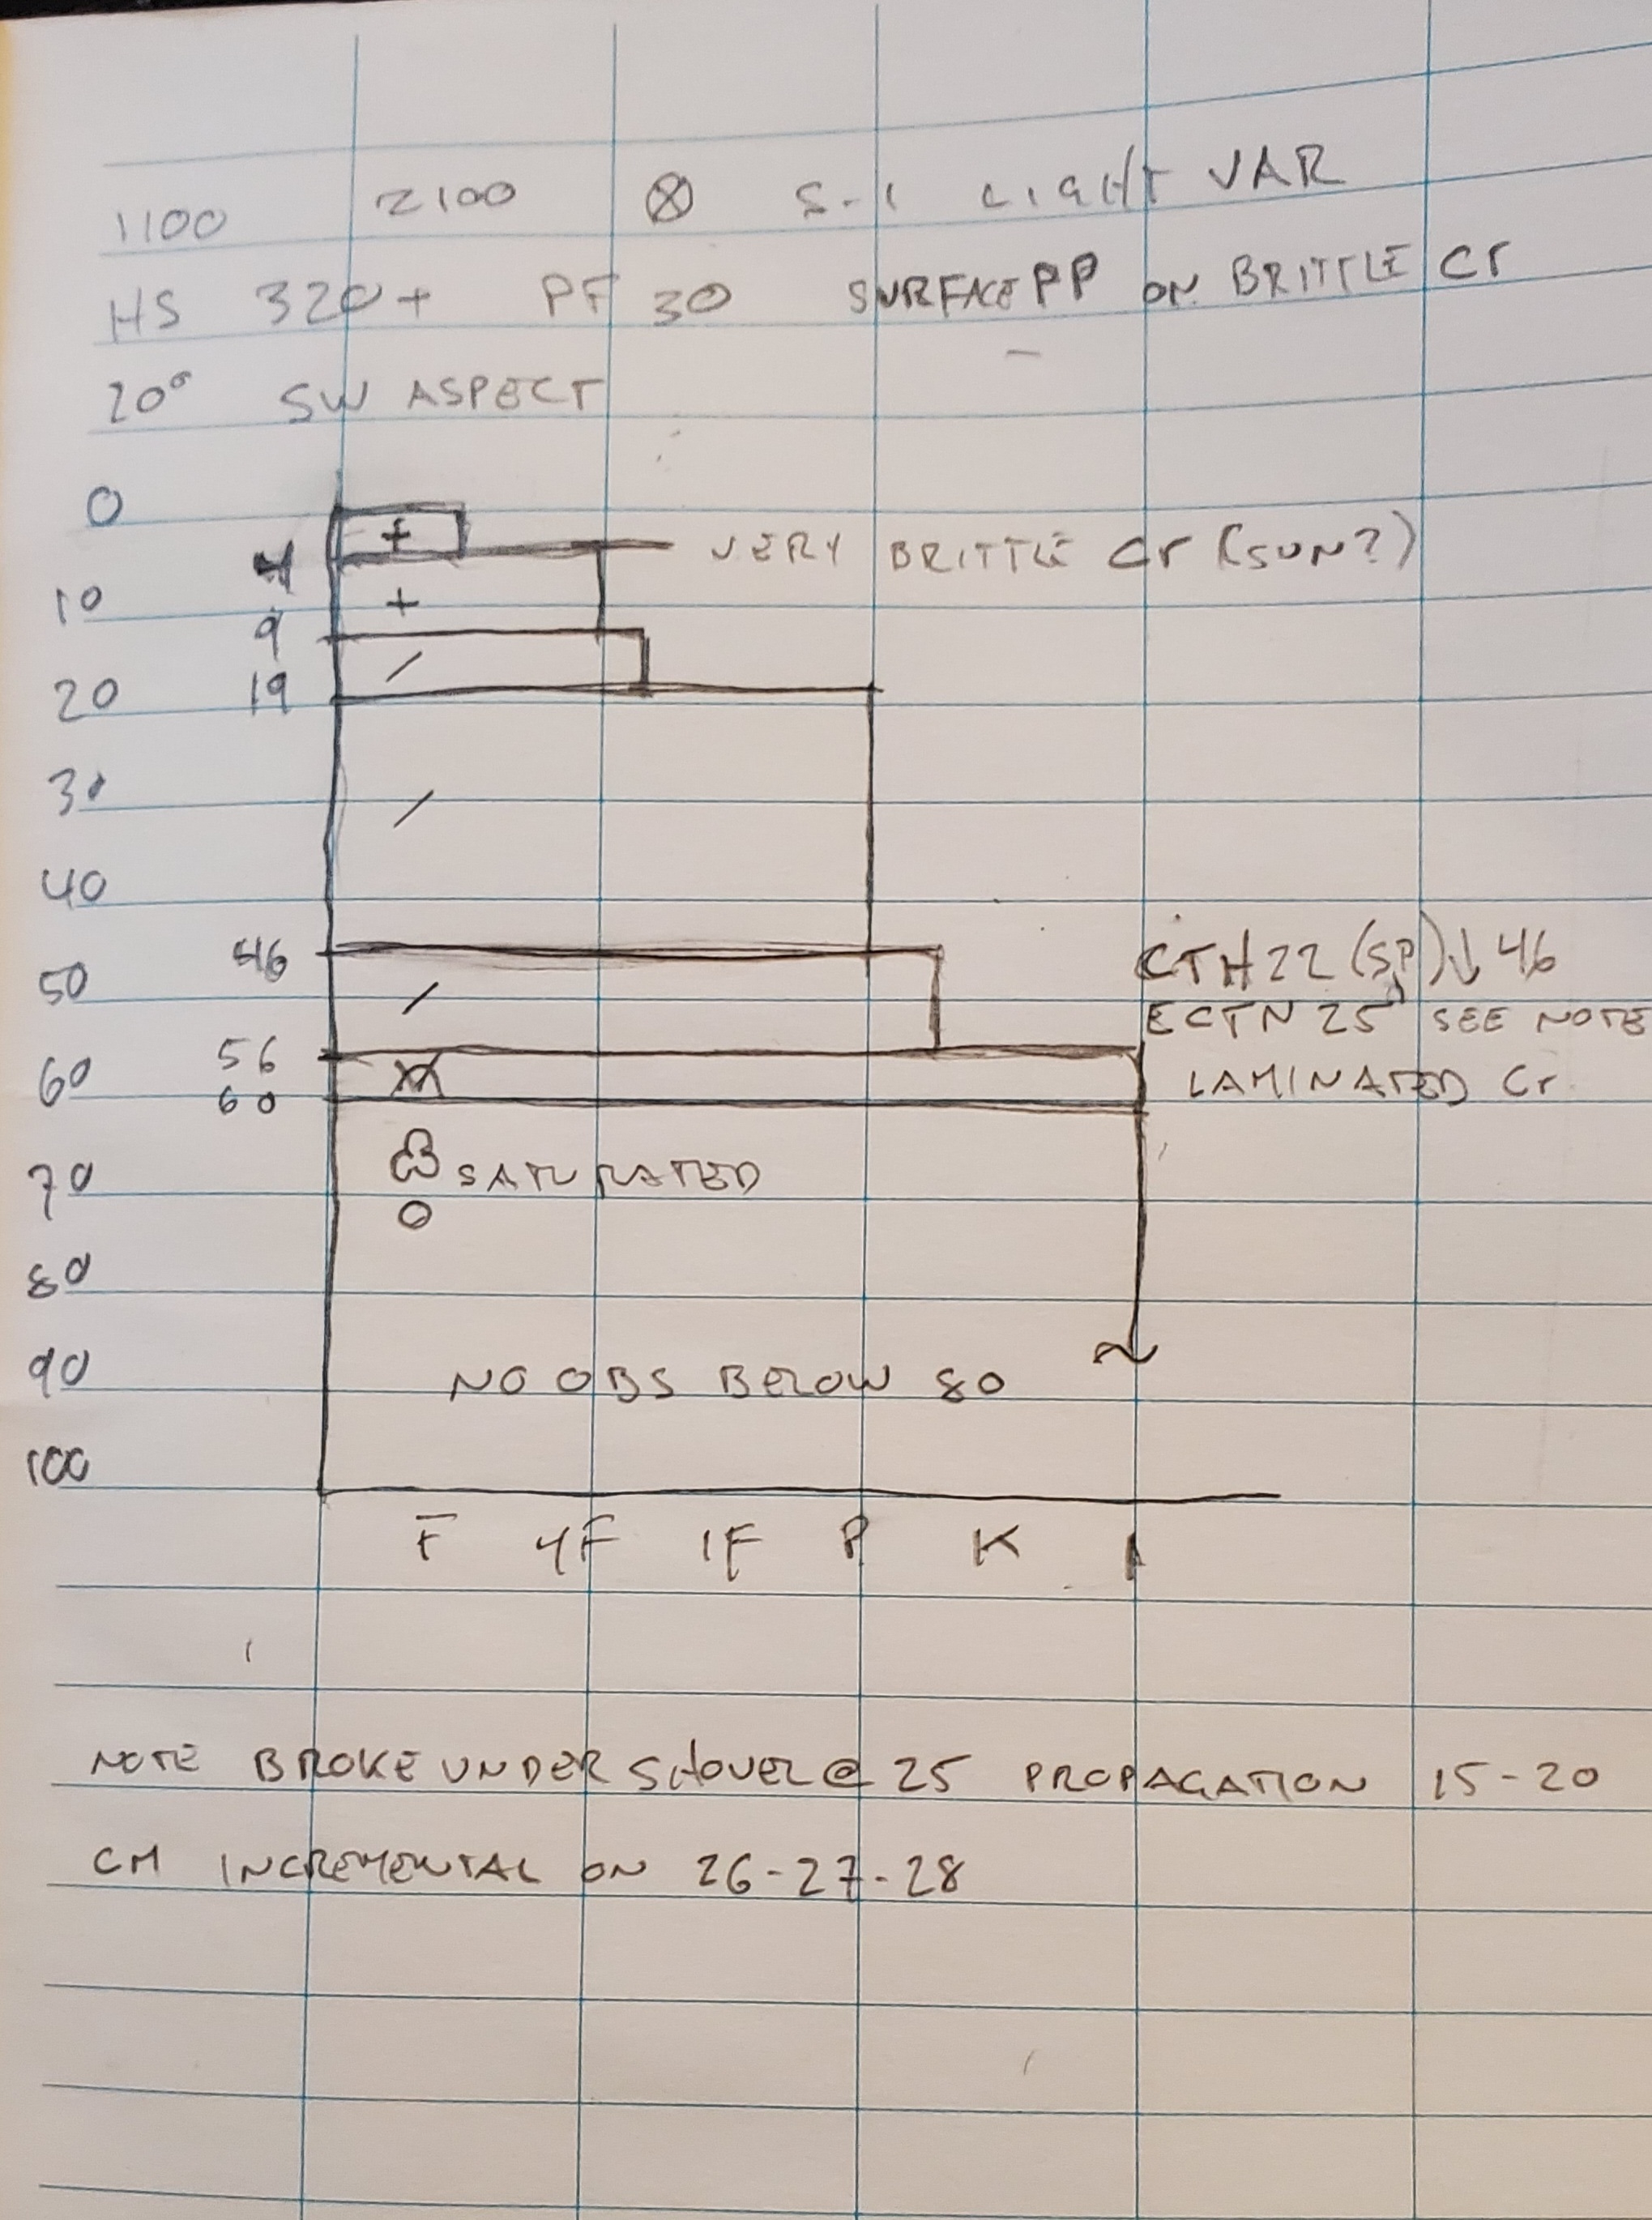 1100 2100 ⊗ S-1 LIGHT VAR
HS 320+ PF 30 SURFACE PP ON BRITTLE Cr
20° SW ASPECT
0
+
4 VERY BRITTLE Cr (SUN?)
10 +
9
/
20 19
30 /
40
46 CTH 22 (SP) ↓ 46
50 / ECTN 25 SEE NOTE
56
60 LAMINATED Cr
60
70 SATURATED
O
80
90 NO OBS BELOW 80
100
F 4F 1F P K I
NOTE BROKE UNDER SHOVEL @ 25 PROPAGATION 15-20
CM INCREMENTAL ON 26-27-28